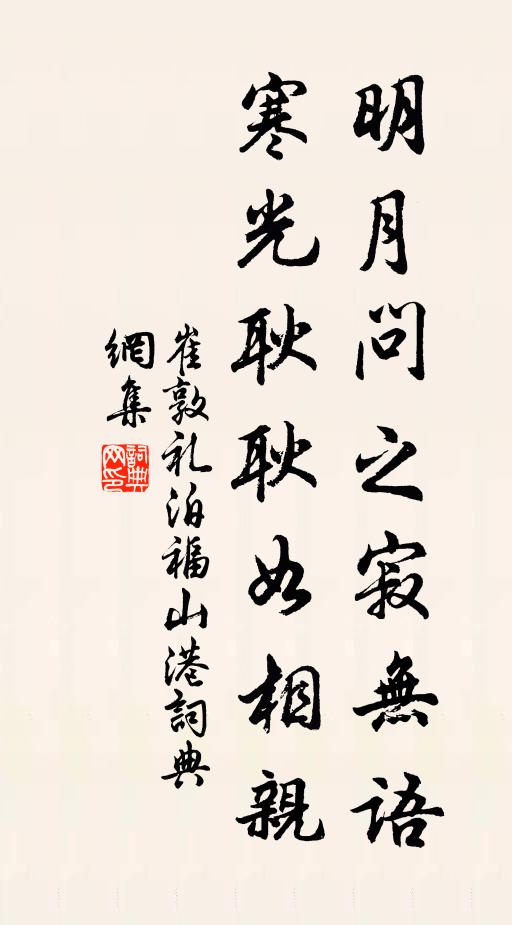 明月問之寂無語
寒光耿耿如相親
崔敦礼泊福山港詞典
網集
詞典
网印